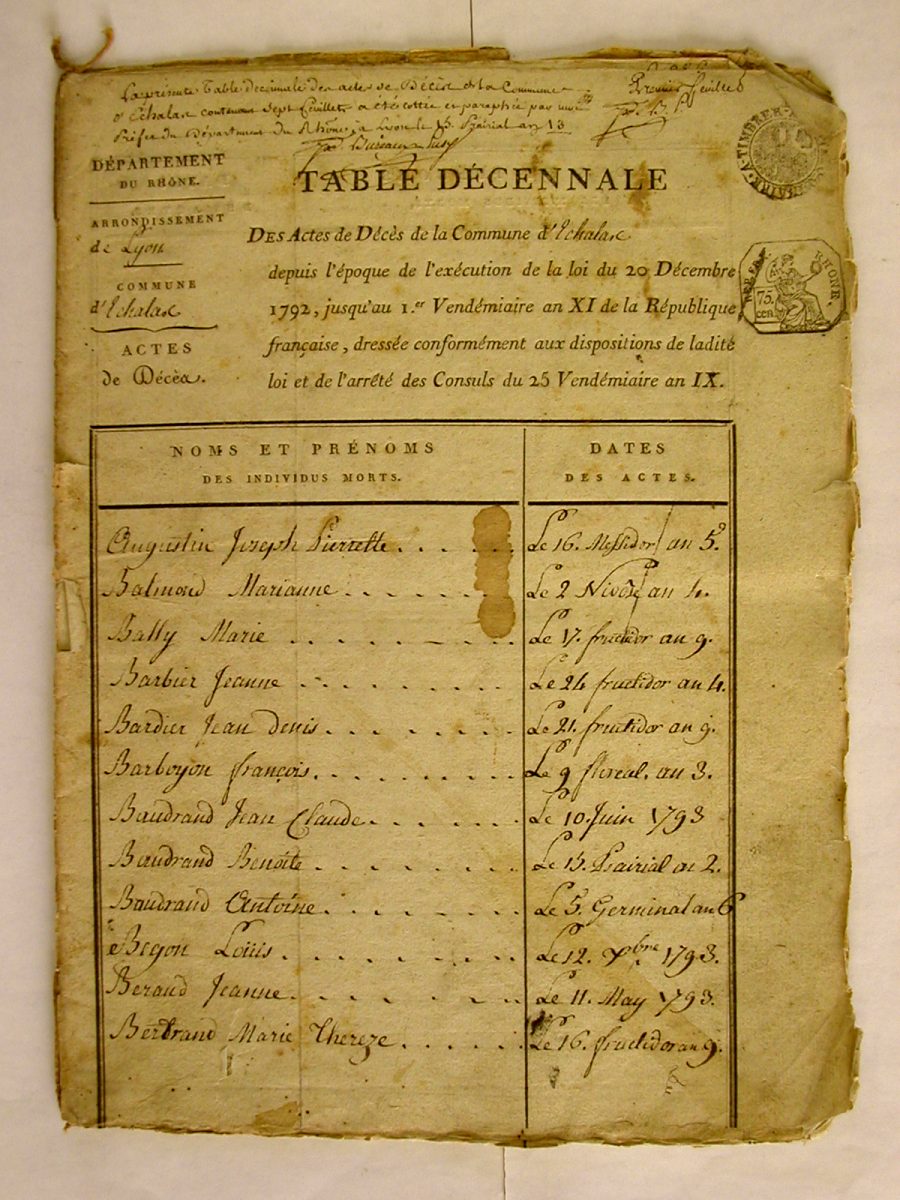 La présente Table décennale des actes de Décès de la Commune
d'Echalas contenant Sept feuillets a été cottée et paraphée par
Préfet du Département du Rhône, à Lyon le 15. Prairial an 13
Premier feuillet
DÉPARTEMENT
DU RHÔNE.
ARRONDISSEMENT
de Lyon
COMMUNE
d'Echalas
ACTES
de Décès.
TABLE DÉCENNALE
DES Actes de Décès de la Commune d'Echalas
depuis l'époque de l'exécution de la loi du 20 Décembre
1792, jusqu'au 1.er Vendémiaire an XI de la République
française, dressée conformément aux dispositions de ladite
loi et de l'arrêté des Consuls du 25 Vendémiaire an IX.
A TIMBRER
RHONE
75.
cen
NOMS ET PRÉNOMS
DES INDIVIDUS MORTS.
DATES
DES ACTES.
Augustin Joseph Pierrette. . . . . Le 16. Messidor an 5.
Balmond Marianne . . . . . Le 2 Nivôse an 4.
Bally Marie . . . . . . Le 17. fructidor an 9.
Barbier Jeanne . . . . . . Le 24 fructidor an 4.
Bardier Jean denis . . . . . . Le 21. fructidor an 9.
Barboyon françois. . . . . . . Le 9 floreal. an 3.
Baudrand Jean Claude . . . . . . Le 10. Juin 1793
Baudrand Benoite . . . . . . Le 15. Prairial an 2.
Baudrand Antoine . . . . . . Le 5. Germinal an 6
Begon Louis . . . . . . . Le 12. Xbre 1793.
Beraud Jeanne . . . . . . Le 11. May 1793.
Bertrand Marie Thereze . . . . . Le 16. fructidor an 9.